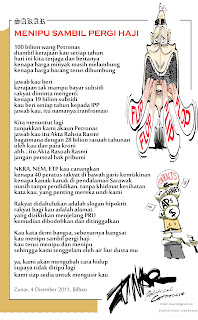 SAKAR
MENIPU SAMBIL PERGI HAJI
100 bilion wang Petronas
diambil kerajaan kau setiap tahun
hari ini kita terjaga dan bertanya
kenapa harga minyak masih melambung
kenapa harga barang terus dibumbung
jawab kau beri
kerajaan tak mampu bayar subsidi
rakyat diminta mengerti
kenapa 19 bilion subsidi
kau beri setiap tahun kepada IPP
jawab kau, itu namanya tranfromasi
Kita menuntut lagi
tunjukkan kami akaun Petronas
jawab kau itu Akta Rahsia Rasmi
bagaimana dengan 28 bilion rasuah tahunan
oleh kau dan para kroni
alih...itu Akta Rasuah Rasmi
jangan persoal hak pribumi
NKRA, NEM, ETP kau canangkan
kenapa 40 peratus rakyat di bawah garis kemiskinan
kenapa kanak-kanak di pendalaman Sarawak
masih tanpa pendidikan, tanpa khidmat kesihatan
kata kau, yang penting mereka undi kami
Rakyat didahulukan adalah slogan hipokrit
rakyat bagi kau adalah alamat
yang dizikirkan menjelang PRU
kemudian dibodohkan dan ditinggalkan
Kau kata demi bangsa, sebenarnya bangsat
kau menipu sambil pergi haji
kau terus menipu dan menipu
sehingga kami tenggelam oleh air liur dusta mu
ya, kami akan mengubah cara hidup
supaya tidak ditipu lagi
kami siap sedia untuk mengusir kau
Zunar, 4 Disember 2011, Bilbao